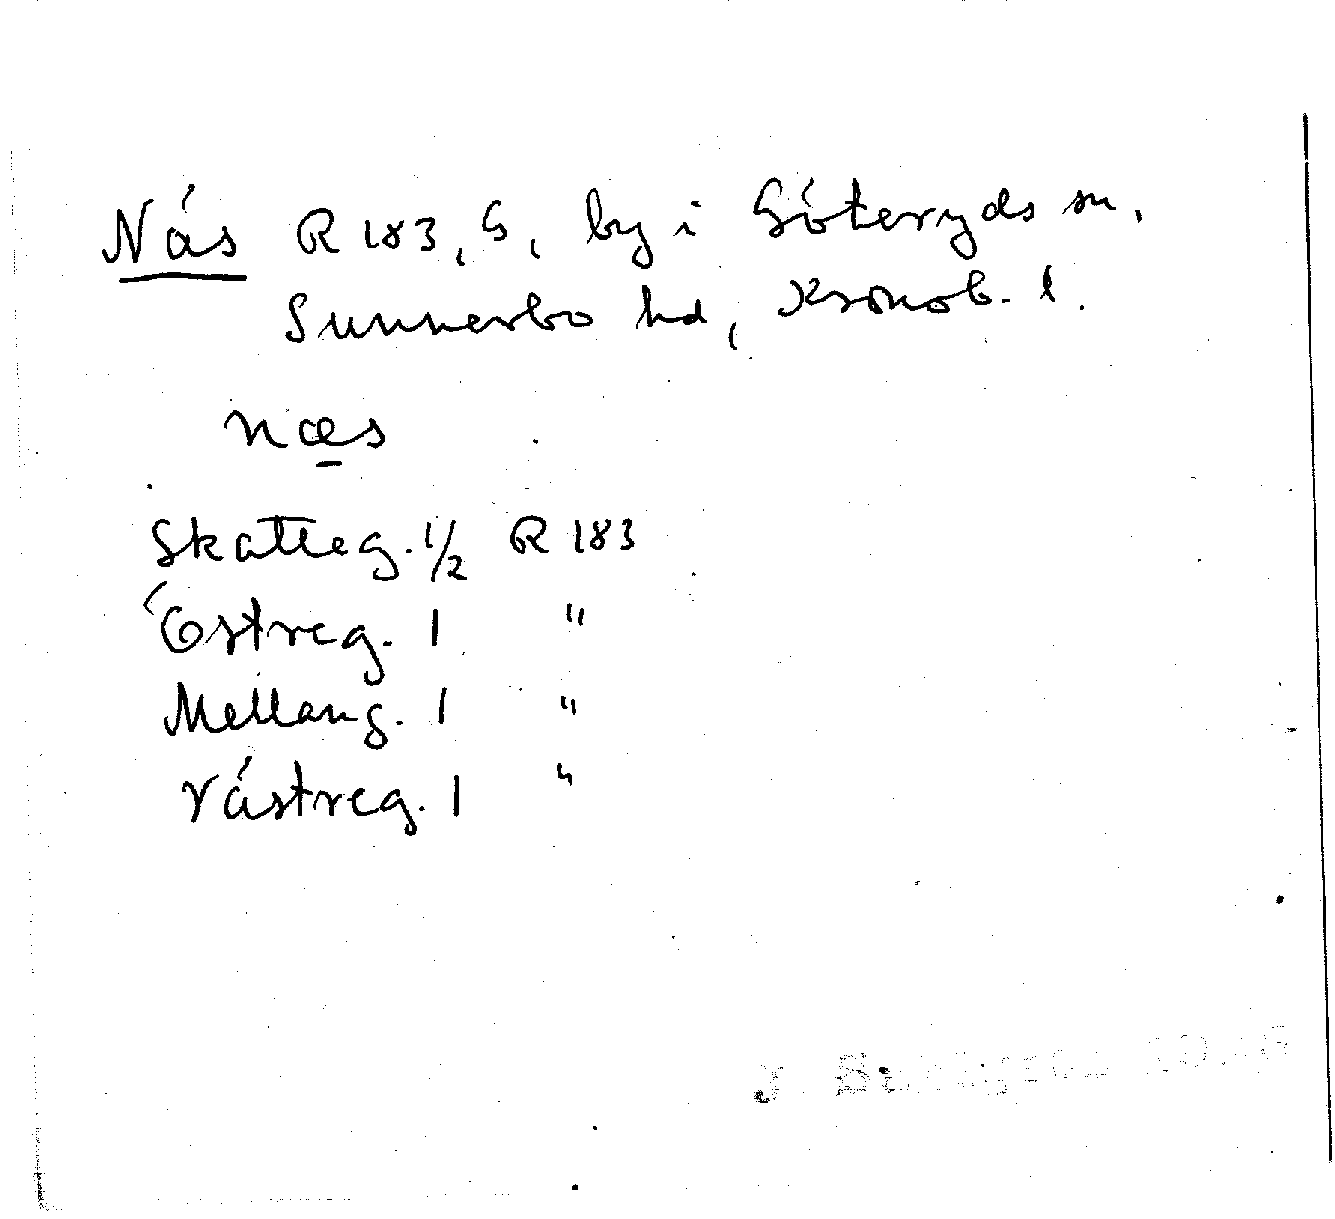 Näs R 183, G, by i Göteryds sn,
Sunnerbo hd, Kronob. l.
næs
Skatteg. 1/2 R 183
Östreg. 1 "
Mellang. 1 "
Västreg. 1 "
J